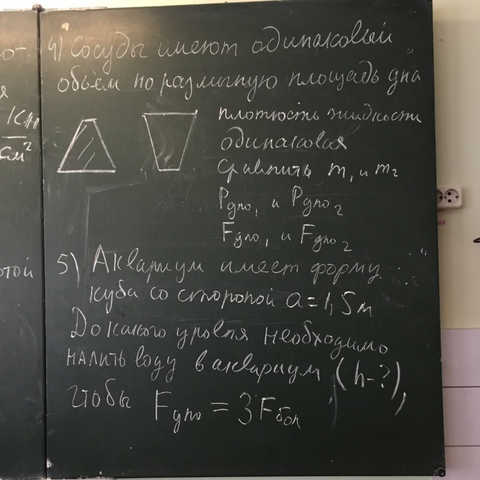 4) Сосуды имеют одинаковый
объём но размытую площадь дна
плотность жидкости
одинаковая
сравнить m₁ и m₂
Pдно₁ и Pдно₂
Fдно₁ и Fдно₂
5) Аквариум имеет форму
куба со стороной a=1,5м
До какого уровня необходимо
налить воду в аквариум (h-?),
чтобы Fдно = 3Fбок
кН
см²